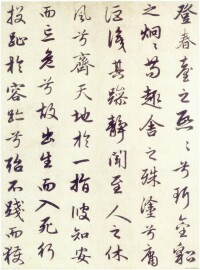 登春臺之熙々兮珥金貂
之炯々苟趣舍之殊塗兮庸
詎識其躁靜聞至人之休
風兮齊天地於一指彼知安
而忘危兮故出生而入死行
投趾於容跡兮殆不踐而獲